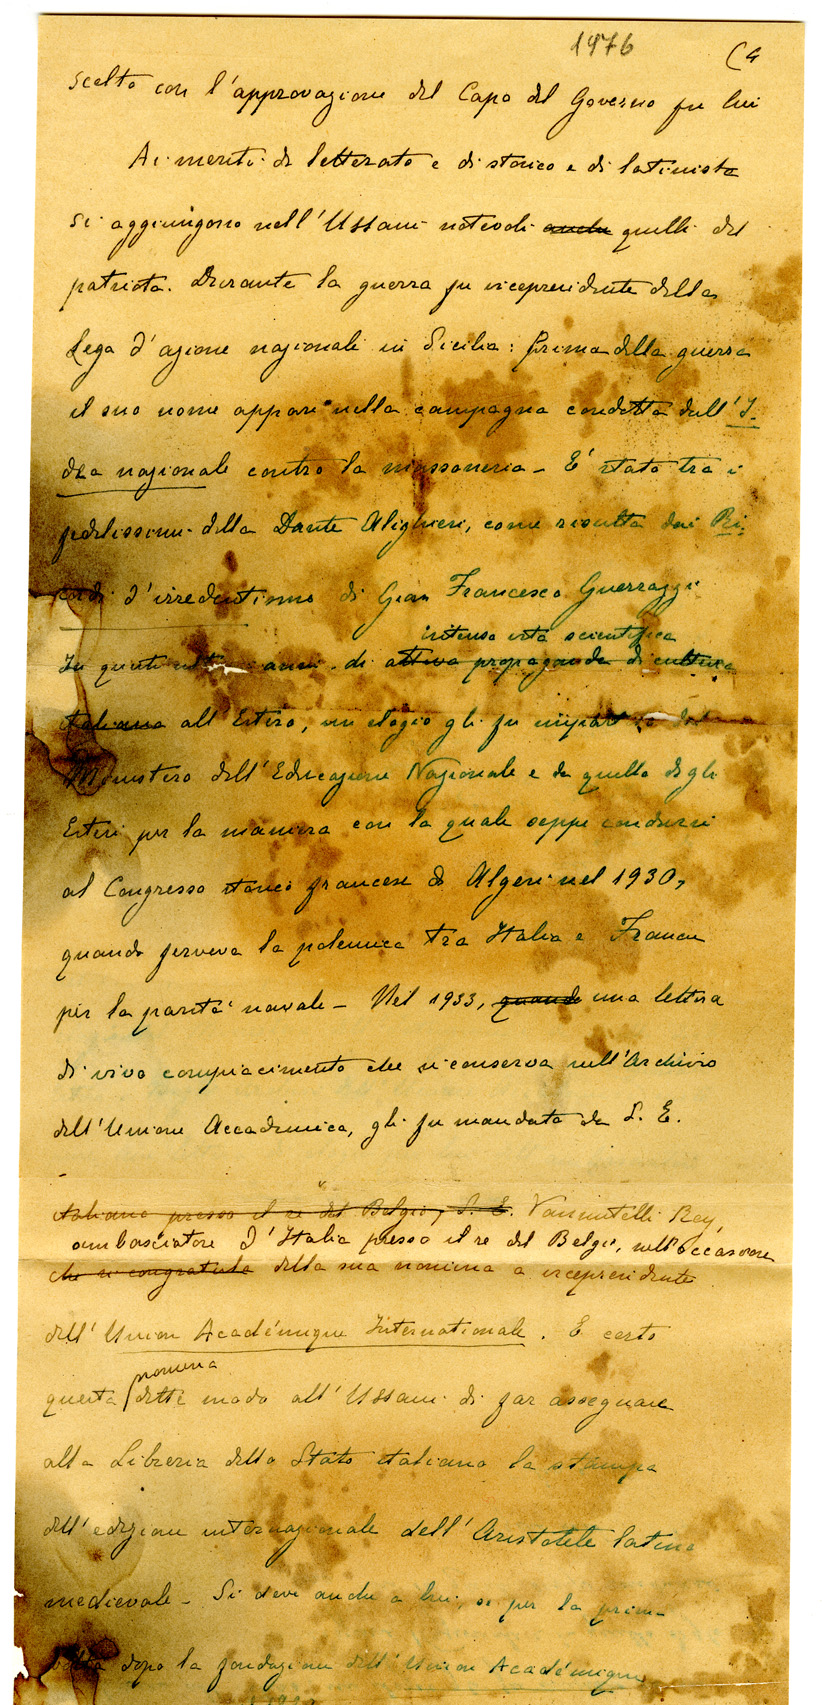 1976
(4
scelto con l'approvazione del Capo del Governo fu lui
Ai meriti di letterato e di storico e di latinista
si aggiungono nell'Ussani notevoli anche quelli del
patriota. Durante la guerra fu vicepresidente della
Lega d'azione nazionale in Sicilia: prima della guerra
il suo nome appare nella campagna condotta dall'I-
dea nazionale contro la massoneria - E' stato tra i
fedelissimi della Dante Alighieri, come risulta dai Ri-
cordi d'irredentismo di Gian Francesco Guerrazzi
intensa vita scientifica
In questi ultimi anni di attiva propaganda di cultura
italiana all'Estero, un elogio gli fu impartito dal
Ministero dell'Educazione Nazionale e da quello degli
Esteri per la maniera con la quale seppe condursi
al Congresso storico francese di Algeri nel 1930,
quando ferveva la polemica tra Italia e Francia
per la parità navale - Nel 1933, quando una lettera
di vivo compiacimento che si conserva nell'Archivio
dell'Unione Accademica, gli fu mandata da S. E.
italiano presso il re del Belgio, S. E. Vannutelli Rey,
ambasciatore d'Italia presso il re del Belgio, nell'occasione
che si congratula della sua nomina a vicepresidente
dell'Union Académique Internationale. E certo
nomina
questa dette modo all'Ussani di far assegnare
alla Libreria dello Stato italiano la stampa
dell'edizione internazionale dell'Aristotele latino
medievale - Si deve anche a lui, se per la prima
volta dopo la fondazione dell'Union Académique